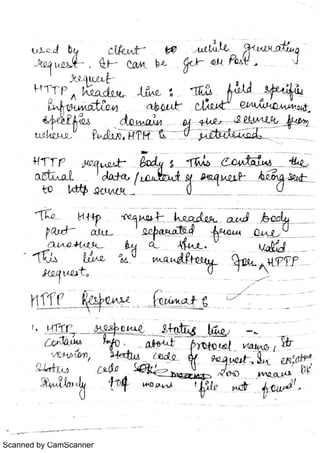 used by client while generating
request. It can be Get or Post.
HTTP request header line : This field specifies
information about client environment.
specifies domain of the server from
where index.HTM is retrieved
HTTP request Body : This contains the
actual data/content of request being sent
to http server
The Http request header and body
part are separated from one
another by a line.
This line is mandatory for valid HTTP
request.
HTTP Response Format :
1. HTTP response status line –
Contains Info. about protocol name, Its
version, status code of request. In
status code 200 means OK
Similarly 404 means 'file not found'.
Scanned by CamScanner